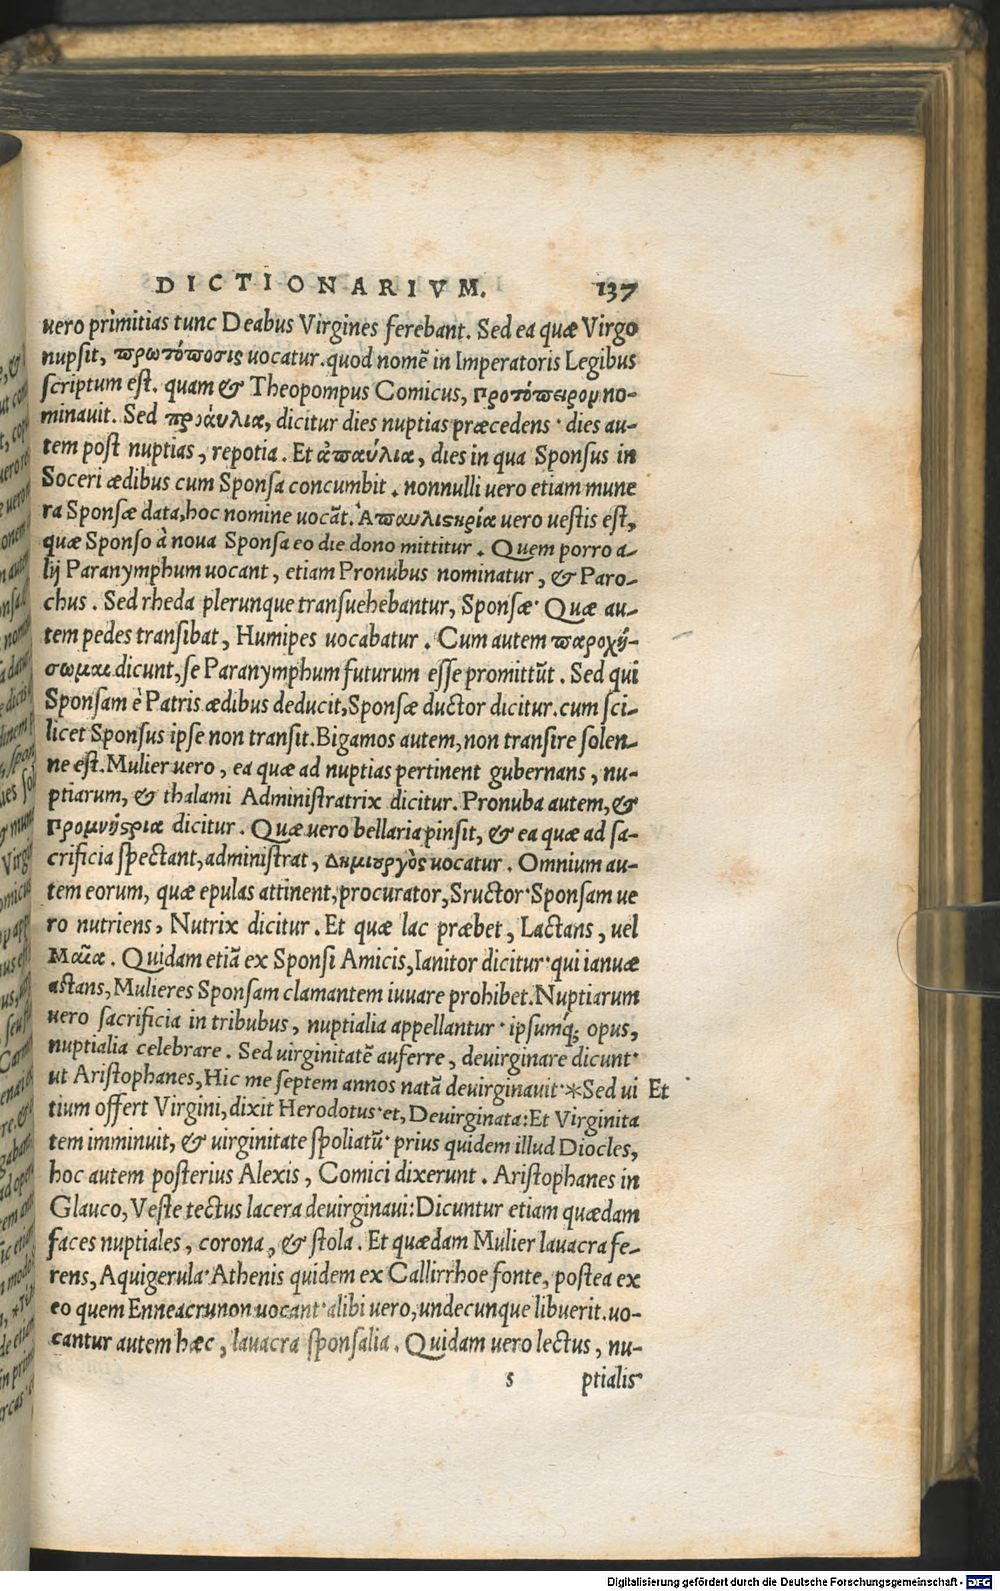 DICTIONARIVM. 137
uero primitias tunc Deabus Virgines ferebant. Sed ea quæ Virgo
nupsit, πρωτόποσις uocatur. quod nomē in Imperatoris Legibus
scriptum est. quam & Theopompus Comicus, προτόπειρον no-
minauit. Sed προάυλια, dicitur dies nuptias præcedens· dies au-
tem post nuptias, repotia. Et ἀπαύλια, dies in qua Sponsus in
Soceri ædibus cum Sponsa concumbit. nonnulli uero etiam mune
ra Sponsæ data, hoc nomine uocāt. Ἀπαυλιςηρία uero uestis est,
quæ Sponso à noua Sponsa eo die dono mittitur. Quem porro a-
lij Paranymphum uocant, etiam Pronubus nominatur, & Paro-
chus. Sed rheda plerunque transuehebantur, Sponsæ· Quæ au-
tem pedes transibat, Humipes uocabatur. Cum autem παροχή-
σωμαι dicunt, se Paranymphum futurum esse promittūt. Sed qui
Sponsam è Patris ædibus deducit, Sponsæ ductor dicitur. cum sci-
licet Sponsus ipse non transit. Bigamos autem, non transire solen-
ne est. Mulier uero, ea quæ ad nuptias pertinent gubernans, nu-
ptiarum, & thalami Administratrix dicitur. Pronuba autem, &
Προμνήςρια dicitur. Quæ uero bellaria pinsit, & ea quæ ad sa-
crificia spectant, administrat, Δημιουργὸς uocatur. Omnium au-
tem eorum, quæ epulas attinent, procurator, Sructor· Sponsam ue
ro nutriens, Nutrix dicitur. Et quæ lac præbet, Lactans, uel
Μαῖα. Quidam etiā ex Sponsi Amicis, Ianitor dicitur· qui ianuæ
astans, Mulieres Sponsam clamantem iuuare prohibet. Nuptiarum
uero sacrificia in tribubus, nuptialia appellantur· ipsumq́; opus,
nuptialia celebrare. Sed uirginitatē auferre, deuirginare dicunt·
ut Aristophanes, Hic me septem annos natā deuirginauit·*Sed ui Et
tium offert Virgini, dixit Herodotus· et, Deuirginata: Et Virginita
tem imminuit, & uirginitate spoliatū· prius quidem illud Diocles,
hoc autem posterius Alexis, Comici dixerunt. Aristophanes in
Glauco, Veste tectus lacera deuirginaui: Dicuntur etiam quædam
faces nuptiales, corona, & stola. Et quædam Mulier lauacra fe-
rens, Aquigerula· Athenis quidem ex Callirrhoe fonte, postea ex
eo quem Enneacrunon uocant· alibi uero, undecunque libuerit. uo-
cantur autem hæc, lauacra sponsalia. Quidam uero lectus, nu-
s ptialis
Digitalisierung gefördert durch die Deutsche Forschungsgemeinschaft - DFG